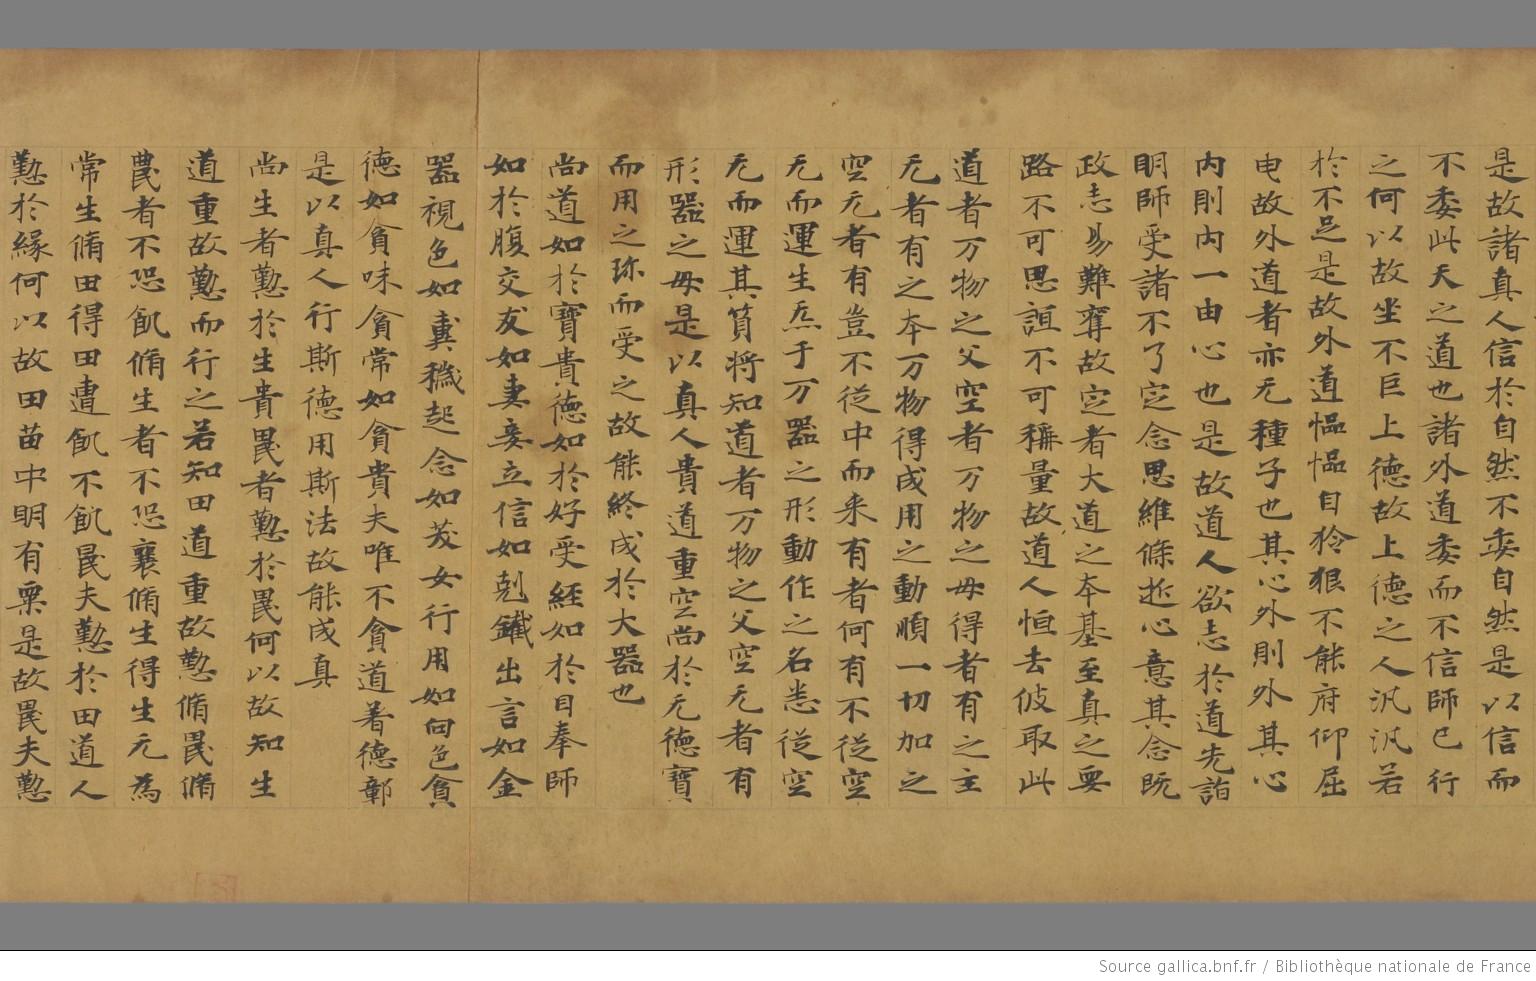 是故諸真人信於自然不委自然是以信而
不委此天之道也諸外道委而不信師已行
之何以故坐不巨上德故上德之人汎汎若
於不足是故外道愠愠自矜狠不能府仰屈
申故外道者亦无種子也其心外則外其心
內則內一由心也是故道人欲志於道先詣
明師受諸不了定念思維條逝心意其念既
政志易難奪故定者大道之夲基至真之要
路不可思誼不可稱量故道人恒去彼取此
道者万物之父空者万物之母得者有之主
无者有之夲万物得成用之動順一切加之
空无者有豈不從中而来有者何有不從空
无而運生炁于万器之形動作之名悉從空
无而運其筫將知道者万物之父空无者有
形器之母是以真人貴道重空尚於无德寶
而用之珎而受之故能終成於大器也
尚道如於寶貴德如於好受經如於目奉師
如於腹交友如妻妾立信如剋鐵出言如金
器視色如糞穢起念如茂女行用如回色貪
德如貪味貪常如貪貴夫唯不貪道著德彰
是以真人行斯德用斯法故能成真
尚生者懃於生貴農者懃於農何以故知生
道重故懃而行之若知田道重故懃脩農脩
農者不恐飢脩生者不恐喪脩生得生无為
常生脩田得田遭飢不飢農夫懃於田道人
懃於緣何以故田苗中明有粟是故農夫懃
Source gallica.bnf.fr / Bibliothèque nationale de France